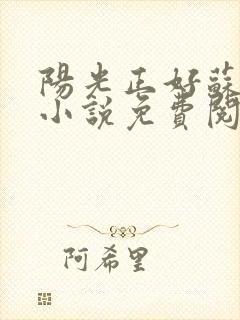 陽光正好蘇
小說免費閱
阿希里